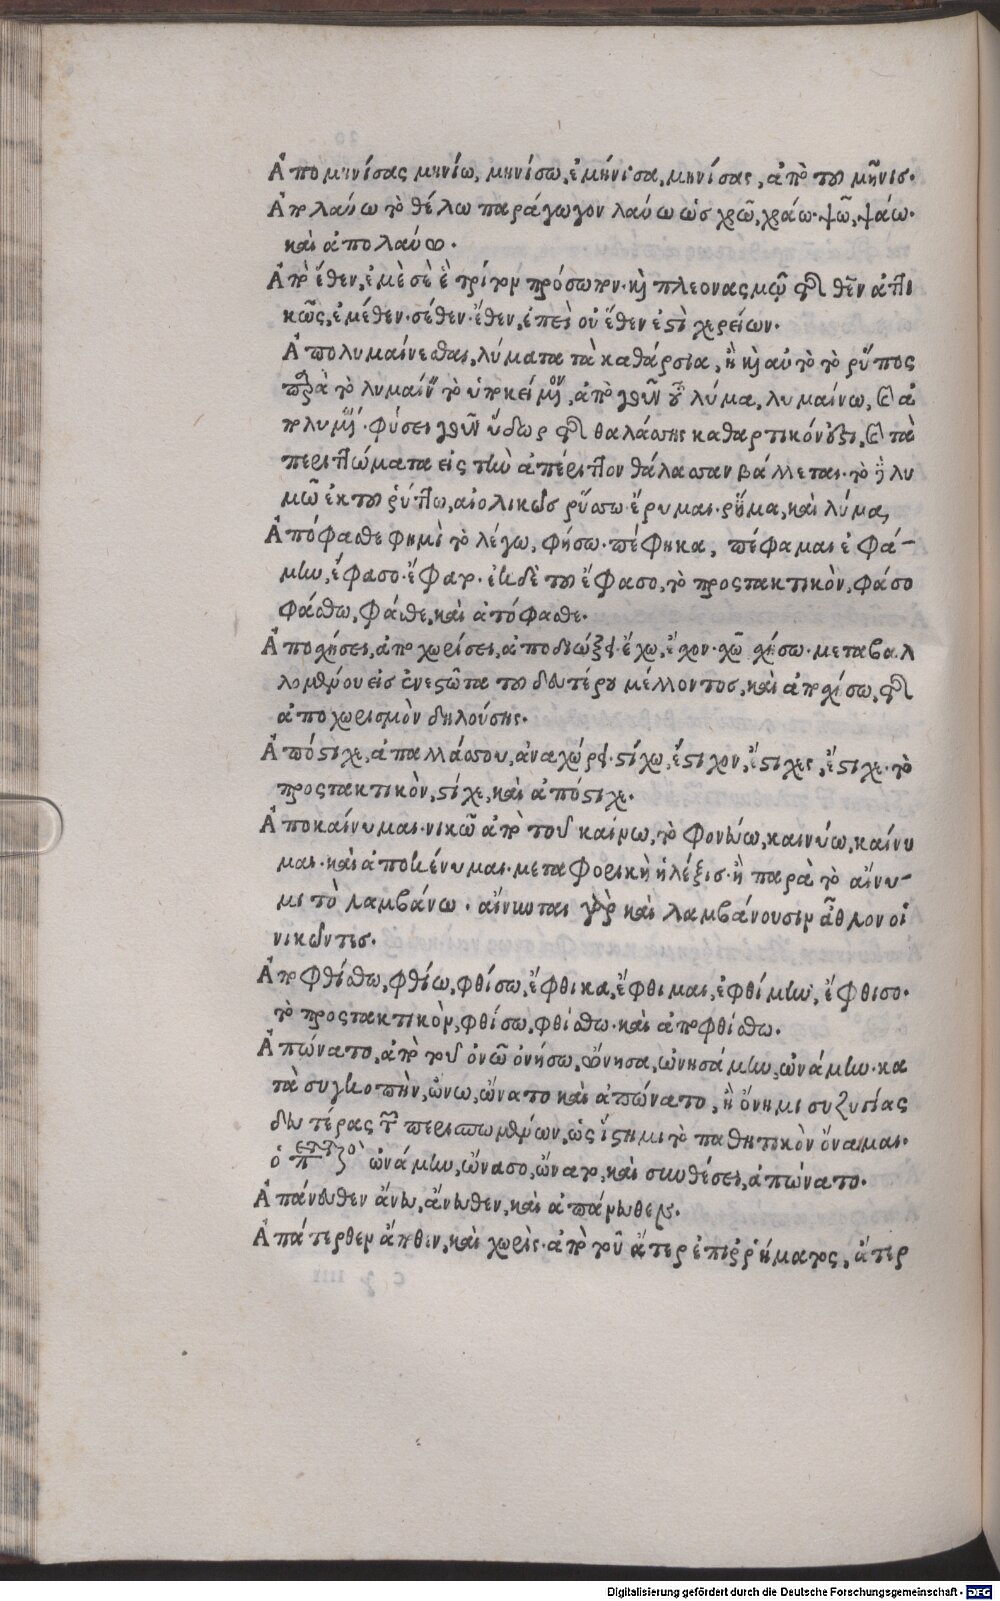 Ἀπομηνίσας μηνίω, μηνίσω, ἐμήνισα, μηνίσας, ἀπὸ τοῦ μῆνισ.
Ἀπολαύω τὸ θέλω παράγωγον λαύω ὡσ χῶ, χάω. ψῶ, ψάω.
καὶ ἀπολαύω.
Ἀπὸ ἕθεν, ἐμὲ σὲ ἓ τρίτον πρόσωπον. καὶ πλεονασμῷ τῆς θεν ἀττι
κῶς, ἐμέθεν. σέθεν. ἕθεν, ἐπεὶ οὐ ἕθεν ἐστὶ χερείων.
Ἀπολυμαίνεσθαι, λύματα τὰ καθάρσια, ἢ καὶ αὐτὸ τὸ ῥύπος
παρὰ τὸ λυμαίν τὸ ὑποκείμενον, ἀπὸ γοῦν τοῦ λύμα, λυμαίνω, καὶ ἀ
πολυμ. φύσει γοῦν ὕδωρ τῆς θαλάσσης καθαρτικόν ἐστι, καὶ τὰ
περιττώματα εἰς τὴν ἀπέριττον θάλασσαν βάλλεται. τὸ δὲ λυ
μῶ ἐκ τοῦ ῥύπτω, αἰολικῶσ ῥύσσω. ἔρυμαι. ῥῦμα, καὶ λύμα,
Ἀπόφασθε φημὶ τὸ λέγω, φήσω. πέφηκα, πέφαμαι ἐφά-
μην, ἔφασο. ἔφατο. ἐκ δὲ τοῦ ἔφασο, τὸ προστακτικὸν, φάσο
φάσθω, φάσθε, καὶ ἀπόφασθε.
Ἀποσχήσει, ἀποχωρίσει, ἀποδιώξει. ἔχω, ἔχον. χῶ χήσω. μεταβαλ
λομένου εἰσ ἐνεστῶτα τοῦ δευτέρου μέλλοντοσ, καὶ ἀποσχίσω, τῆς
ἀποχωρισμὸν δηλούσης.
Ἀπόστιχε, ἀπαλλάσσου, ἀναχώρει. στίχω, ἔστιχον, ἔστιχες, ἔστιχε. τὸ
προστακτικὸν, στίχε, καὶ ἀπόστιχε.
Ἀποκαίνυμαι. νικῶ ἀπὸ τοῦ καίνω, τὸ φονεύω, καινύω, καίνυ
μαι. καὶ ἀποκαίνυμαι. μεταφορικὴ ἡ λέξισ. ἢ παρὰ τὸ αἴνυ-
μι τὸ λαμβάνω. αἴνυνται γὰρ καὶ λαμβάνουσιν ἆθλον οἱ
νικῶντεσ.
Ἀποφθίσθω, φθίω, φθίσω, ἔφθικα, ἔφθιμαι, ἐφθίμην, ἔφθισο.
τὸ προστακτικὸν, φθίσω, φθίσθω. καὶ ἀποφθίσθω.
Ἀπώνατο, ἀπὸ τοῦ ὀνῶ ὀνήσω, ὤνησα, ὠνησάμην, ὠνάμην. κα
τὰ συγκοπὴν, ὤνω, ὤνατο καὶ ἀπώνατο, ἢ ὄνημι συζυγίας
δευτέρας τῶν περισπωμένων, ὡς ἵστημι τὸ παθητικὸν ὄναμαι.
ὁ ὠνάμην, ὤνασο, ὤνατο, καὶ συνθέσει, ἀπώνατο.
Ἀπάνευθεν ἄνευ, ἄνευθεν, καὶ ἀπάνευθεν.
Ἀπάτερθεν ἄποθεν, καὶ χωρὶς. ἀπὸ τοῦ ἄτερ ἐπιρρήματος, ἄτερ
Digitalisierung gefördert durch die Deutsche Forschungsgemeinschaft - DFG